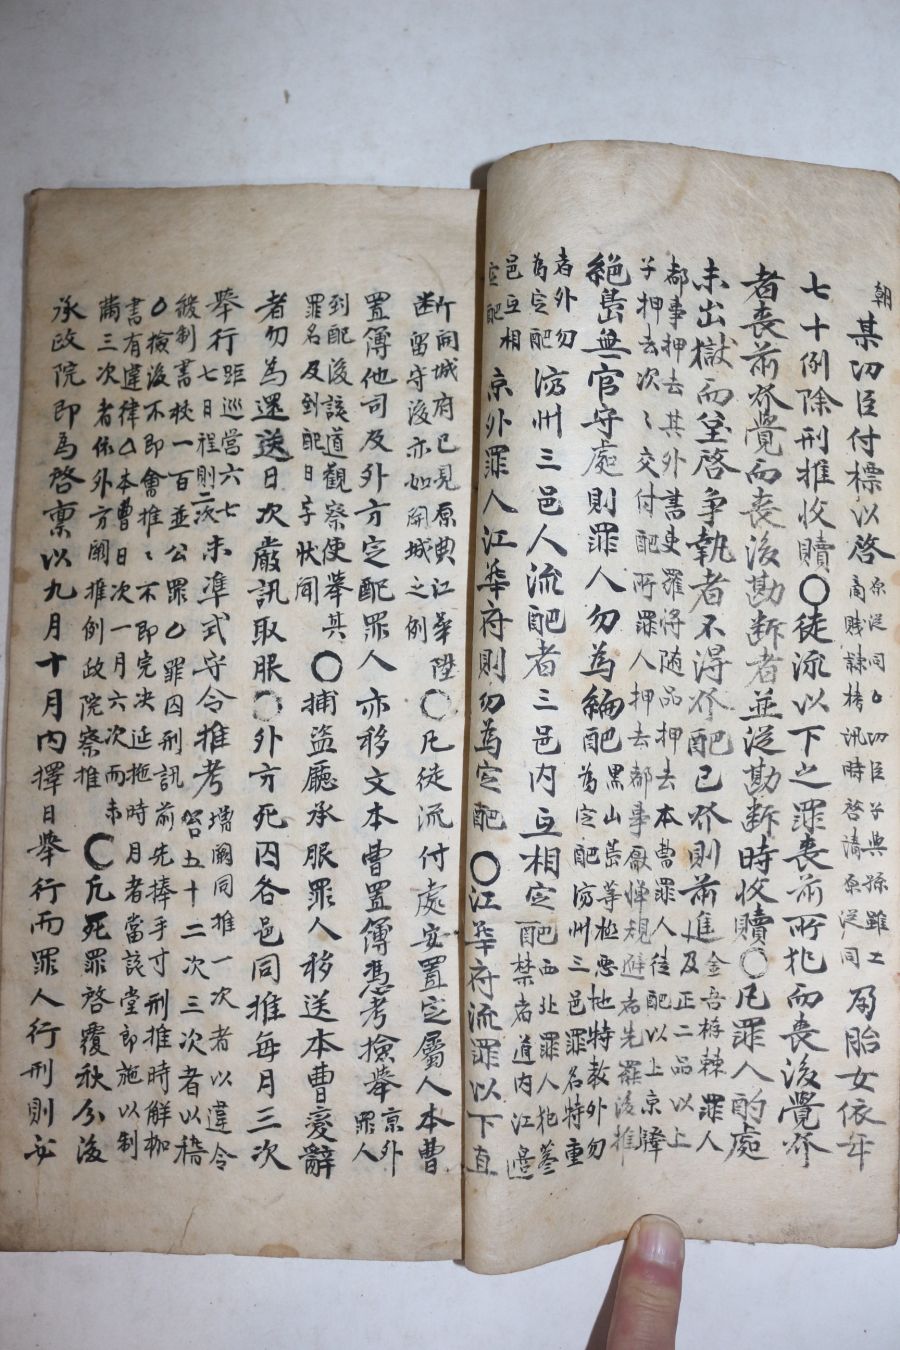 朝
某功臣付標以啓
原從同○功臣子與孫雖工
商賤隷栲訊時啓請原從同
孕胎女依年
七十例除刑推收贖○徒流以下之罪喪前所犯而喪後覺發
者喪前發覺而喪後勘斷者並從勘斷時收贖○凡罪人酌處
未出獄而臺啓爭執者不得發配已發則前進
金吾栫棘罪人
及正二品以上
都事押去其外書吏羅將隨品押去本曹罪人徒配以上京驛
子押去次〻交付配所罪人押去都事厭憚規避者先罷後推
絶島無官守處則罪人勿爲編配
黑山島等極惡地特敎外勿
爲定配濟州三邑罪名特重
者外勿
爲定配
濟州三邑人流配者三邑內互相定配
西北罪人犯蔘
禁者道內江邊
邑互相
定配
京外罪人江華府則勿爲定配○江華府流罪以下直
斷
開城府已見原典江華陞
留守後亦如開城之例
○凡徒流付處安置定屬人本曹
置簿他司及外方定配罪人亦移文本曹置簿憑考撿擧
京外
罪人
到配後該道觀察使擧其
罪名及到配日字狀聞
○捕盜廳承服罪人移送本曹變辭
者勿爲還送日次嚴訊取服○外方死囚各邑同推每月三次
擧行
距巡營六七
七日程則二次
未準式守令推考
增闕同推一次者以違令
笞五十二次三次者以稽
緩制書杖一百並公罪○罪囚刑訊前先捧手寸刑推時解枷
○檢後不卽會推〻不卽完決延拖時月者當該堂郞施以制
書有違律○本曹日次一月六次而未
滿三次者依外方闕推例政院察推
○凡死罪啓覆秋分後
承政院卽爲啓稟以九月十月內擇日擧行而罪人行刑則安